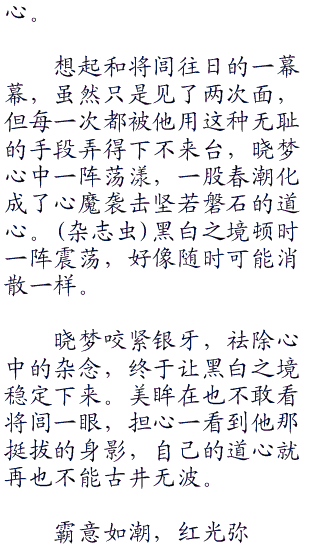 心。
想起和将闾往日的一幕
幕，虽然只是见了两次面，
但每一次都被他用这种无耻
的手段弄得下不来台，晓梦
心中一阵荡漾，一股春潮化
成了心魔袭击坚若磐石的道
心。(杂志虫)黑白之境顿时
一阵震荡，好像随时可能消
散一样。
晓梦咬紧银牙，祛除心
中的杂念，终于让黑白之境
稳定下来。美眸在也不敢看
将闾一眼，担心一看到他那
挺拔的身影，自己的道心就
再也不能古井无波。
霸意如潮，红光弥